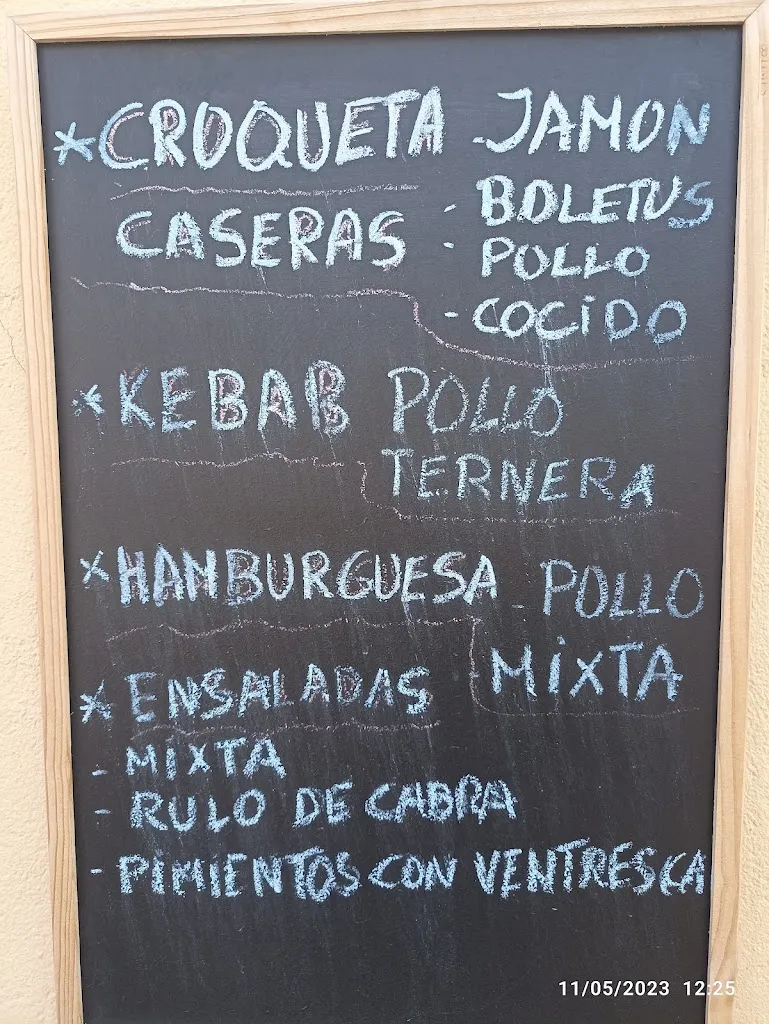 *CROQUETA - JAMON
CASERAS - BOLETUS
- POLLO
- COCIDO
* KEBAB POLLO
TERNERA
* HANBURGUESA - POLLO
MIXTA
* ENSALADAS
- MIXTA
- RULO DE CABRA
- PIMIENTOS CON VENTRESCA
11/05/2023 12:25